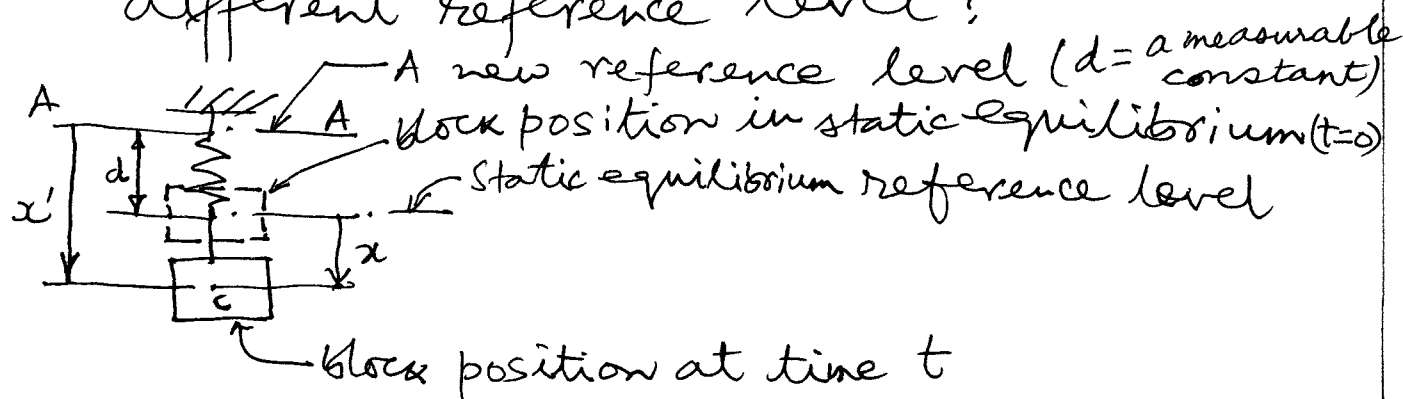 different reference level?
A new reference level (d = a measurable constant)
A
A
block position in static equilibrium (t=0)
d
static equilibrium reference level
x'
x
c
block position at time t